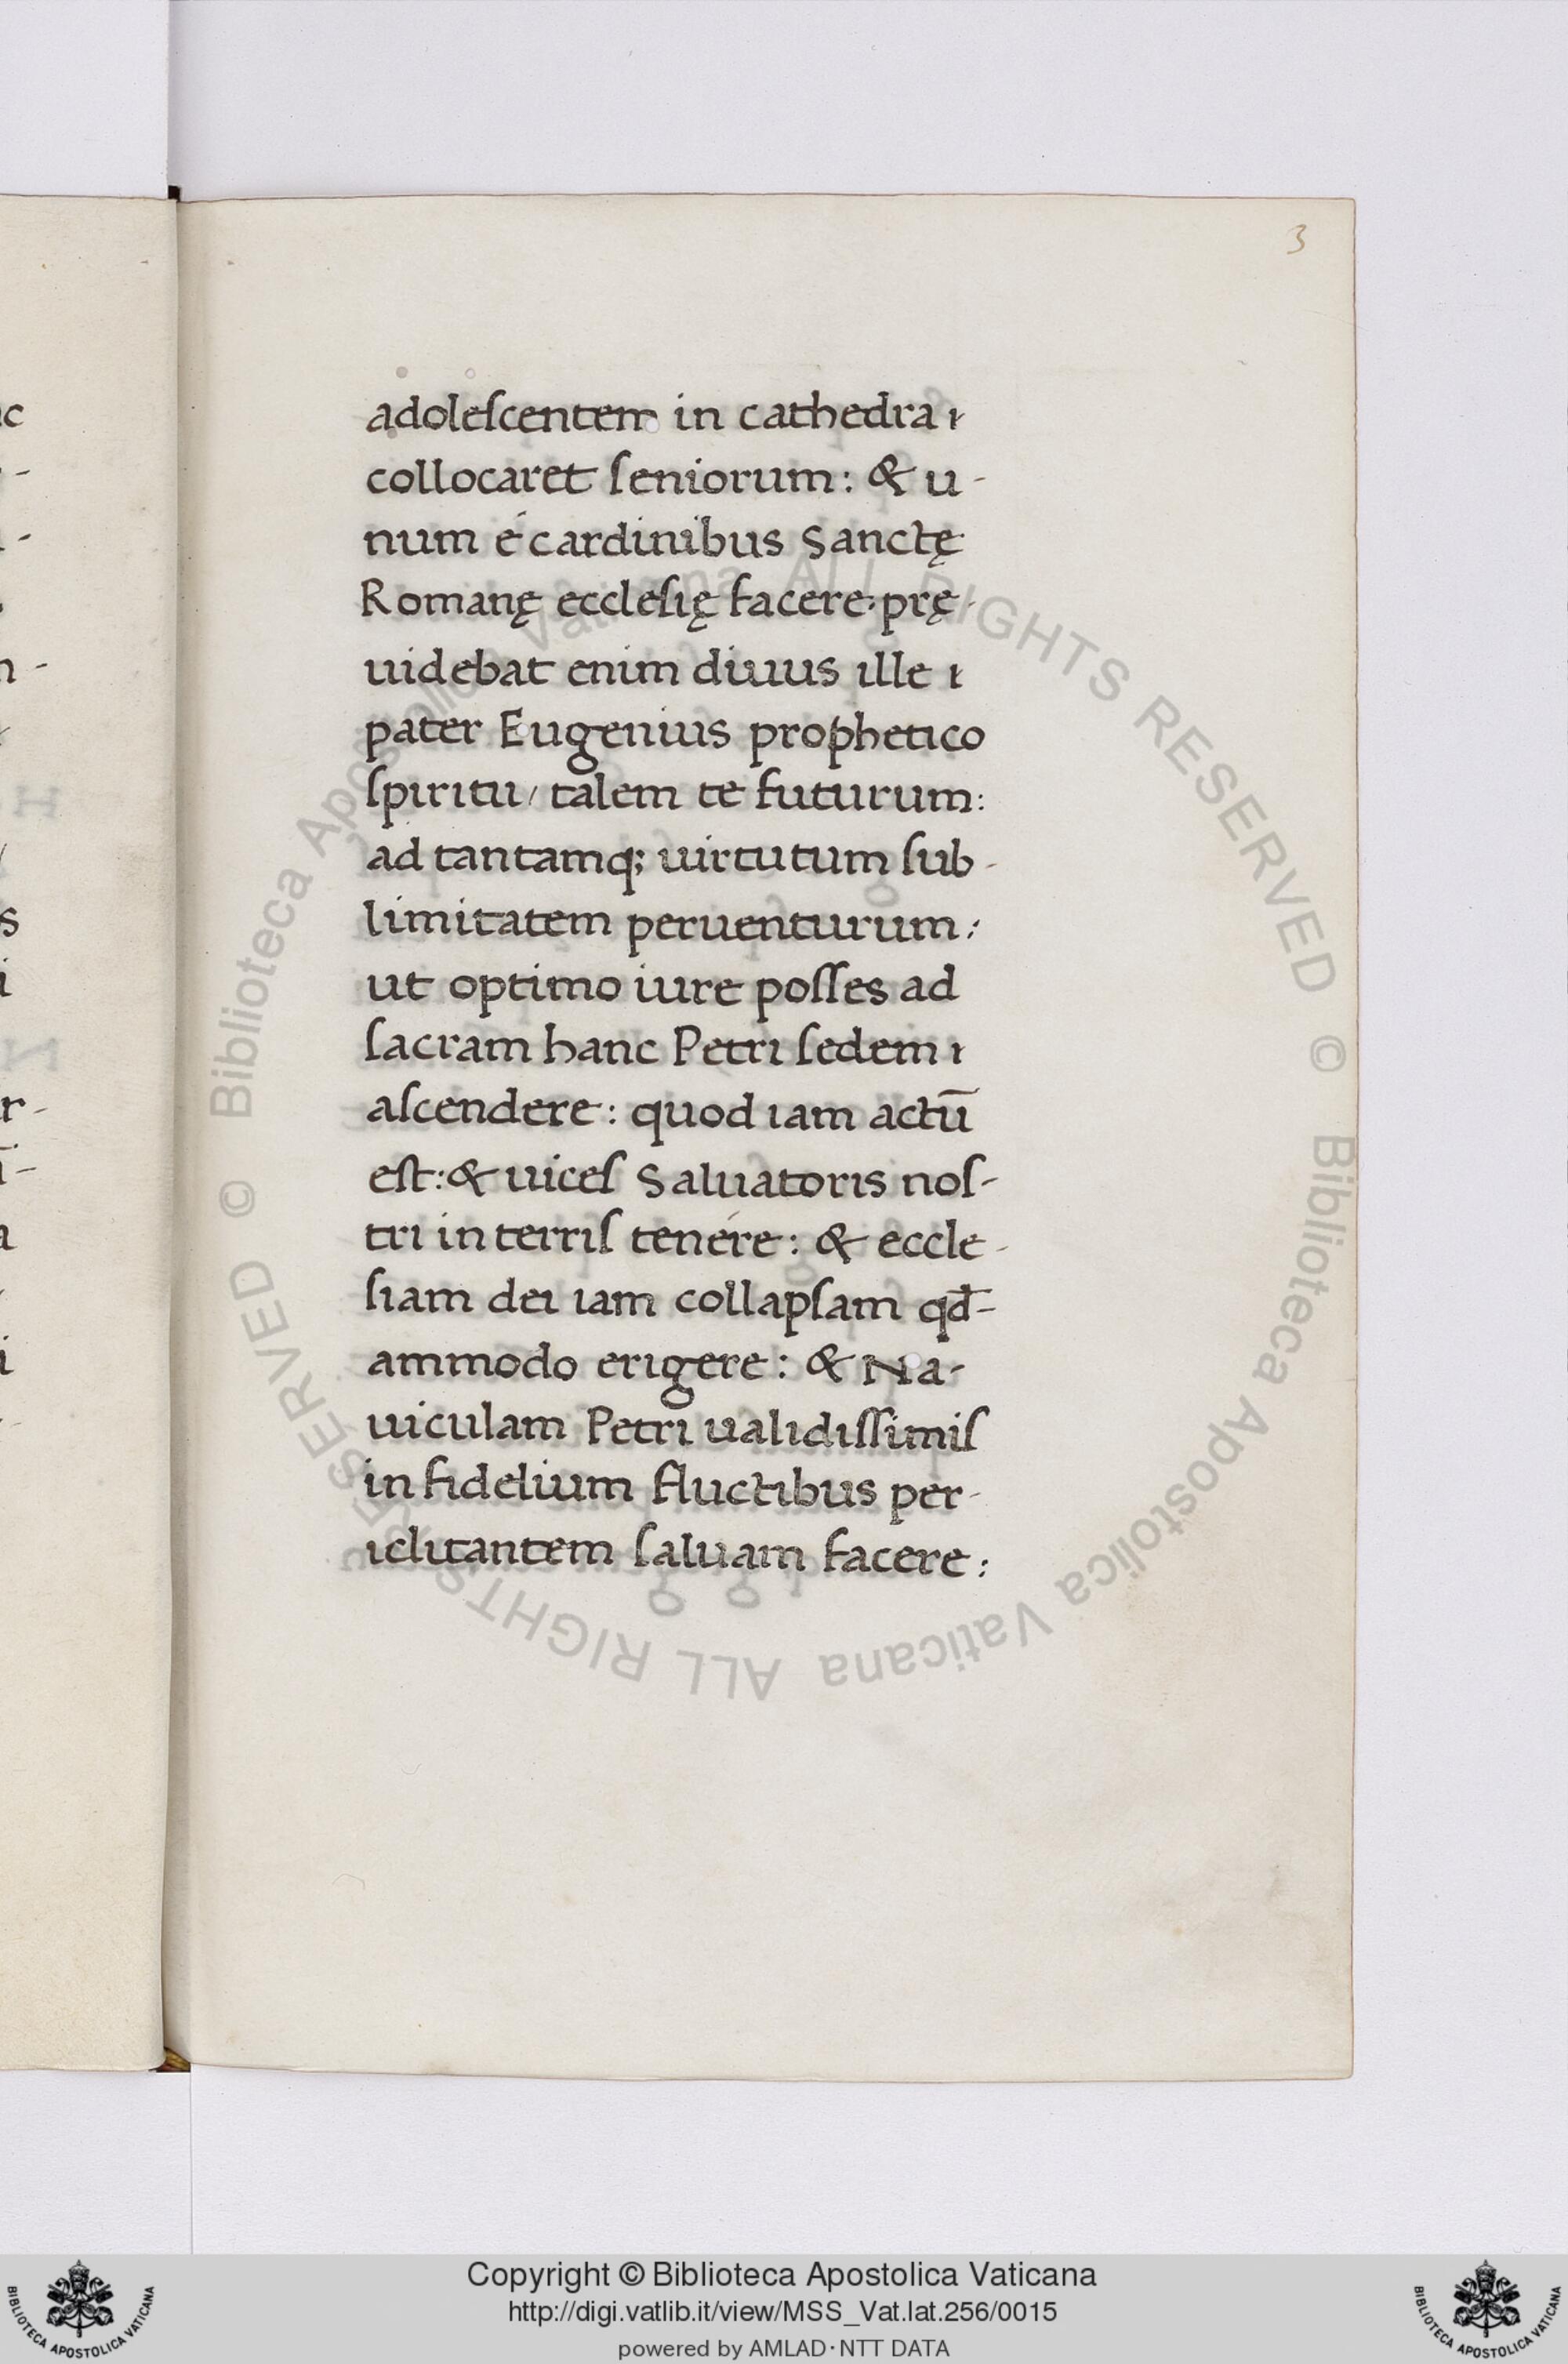 3
adoleſcentem in cathedra ɩ
collocaret ſeniorum: & u-
num é cardinibus Sanctę
Romanę eccleſię facere· prę-
uidebat enim diuus ille ɩ
pater Eugenius prophetico
ſpiritu/ talem te futurum:
ad tantamq; uirtutum ſub-
limitatem peruenturum:
ut optimo iure poſſes ad
ſacram hanc Petri ſedem ɩ
aſcendere: quod iam actū
eſt: & uiceſ Saluatoris noſ-
tri in terriſ tenére: & eccle-
ſiam dei iam collapſam qd̄-
ammodo erigere: & Na-
uiculam Petri ualidiſſimiſ
infidelium fluctibus per-
iclitantem ſaluam facere:
© Biblioteca Apostolica Vaticana ALL RIGHTS RESERVED © Biblioteca Apostolica Vaticana ALL RIGHTS RESERVED
Copyright © Biblioteca Apostolica Vaticana
http://digi.vatlib.it/view/MSS_Vat.lat.256/0015
powered by AMLAD·NTT DATA
BIBLIOTECA APOSTOLICA VATICANA
BIBLIOTECA APOSTOLICA VATICANA